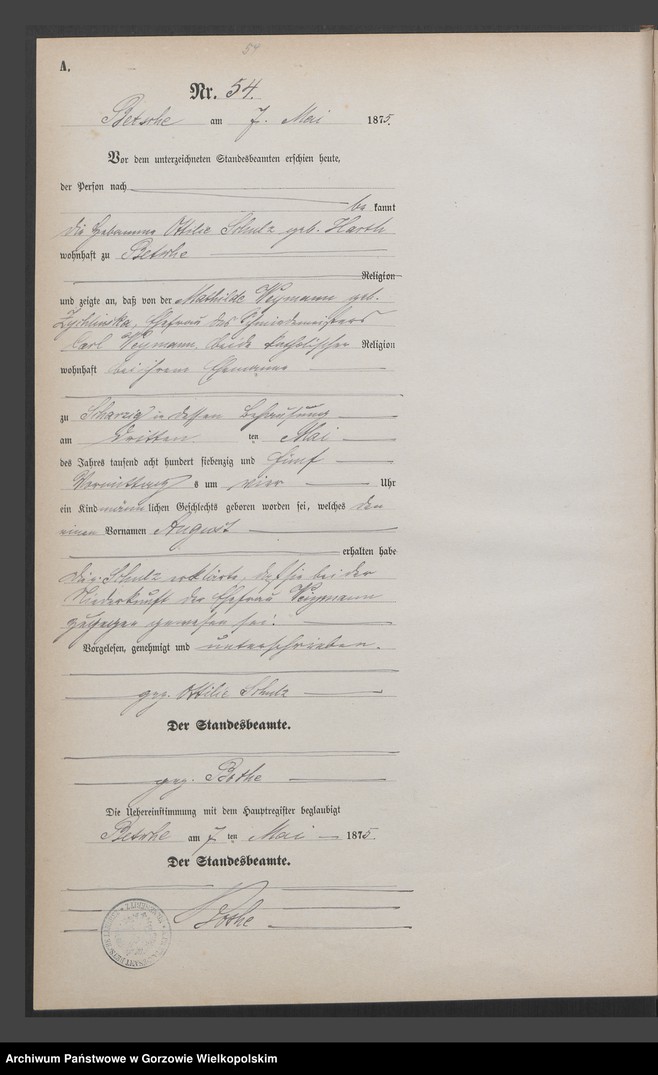 54
A.
Nr. 54.
Betsche am 7. Mai 1875.
Vor dem unterzeichneten Standesbeamten erschien heute,
der Person nach
be kannt
die Hebamme Ottilie Schulz geb. Harth
wohnhaft zu Betsche
Religion
und zeigte an, daß von der Mathilde Weymann geb.
Zychlinska, Ehefrau des Schmiedemeisters
Carl Weymann, beide katholischer Religion
wohnhaft bei ihrem Ehemanne
zu Scharzig in dessen Behausung
am dritten ten Mai
des Jahres tausend acht hundert siebenzig und fünf
Vormittags s um vier Uhr
ein Kind männlichen Geschlechts geboren worden sei, welches den
einen Vornamen August
erhalten habe
Die Schulz erklärte, daß sie bei der
Niederkunft der Ehefrau Weymann
zugegen gewesen sei.
Vorgelesen, genehmigt und unterschrieben.
gez. Ottilie Schulz
Der Standesbeamte.
gez. Bothe
Die Uebereinstimmung mit dem Hauptregister beglaubigt
Betsche am 7 ten Mai 1875.
Der Standesbeamte.
Bothe
Archiwum Państwowe w Gorzowie Wielkopolskim